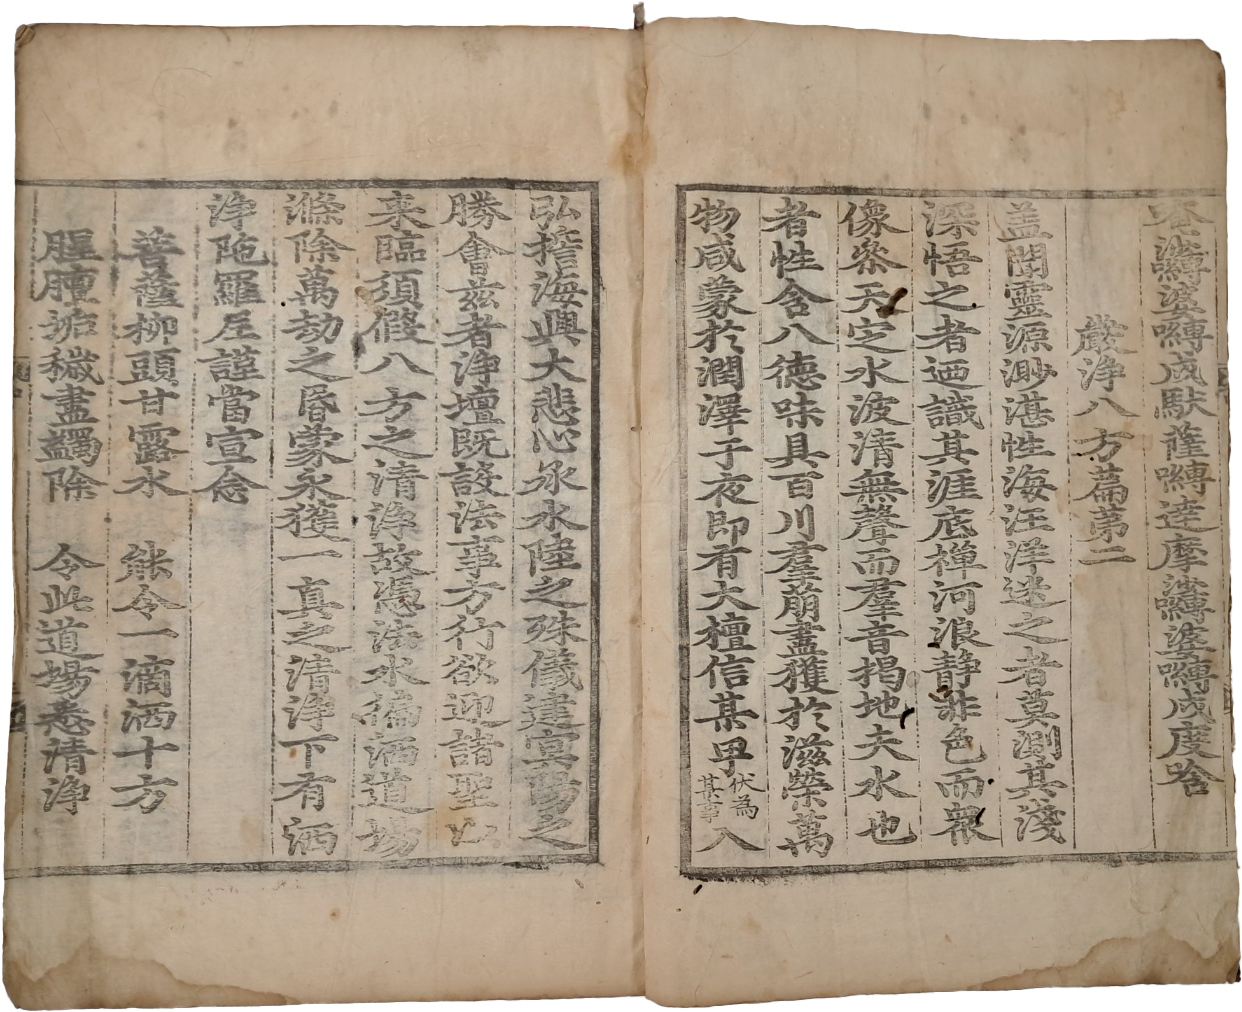 唵薩嚩婆嚩戍馱薩嚩達摩薩嚩婆嚩戍度晗
嚴浄八方篇苐二
盖聞靈源渺湛性海汪洋迷之者莫測其淺
深悟之者迺識其涯底禅河浪静非色而衆
像叅天定水波清無聲而羣音揭地夫水也
者性含八德味具百川羣萠盡獲扵滋榮萬
物咸蒙扵潤澤于夜即有大檀信某甲伏為某事入
弘擔海興大悲心承水陸之殊儀建㝠陽之
勝會兹者浄壇既設法事方行欲迎諸聖以
来臨須假八方之清浄故憑法水徧洒道場
滌除萬劫之昏蒙永獲一真之清浄下有洒
浄陁羅尼謹當宣念
菩薩柳頭甘露水 能令一滴洒十方
腥膻垢穢盡蠲除 令此道場悉清浄